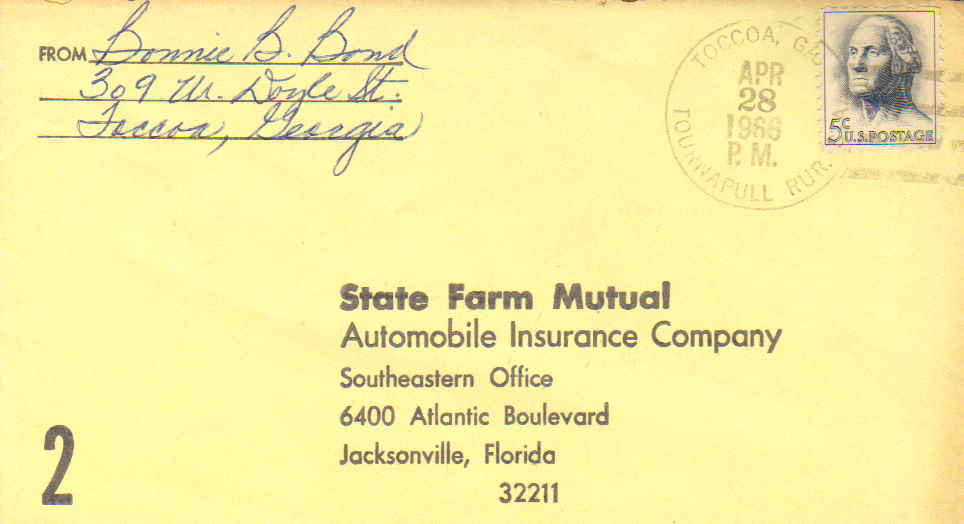 FROM Bonnie B. Bond
309 W. Doyle St.
Toccoa, Georgia
TOCCOA, GA.
APR
28
1966
P.M.
TOURNAPULL RUR.
5c
U.S. POSTAGE
State Farm Mutual
Automobile Insurance Company
Southeastern Office
6400 Atlantic Boulevard
Jacksonville, Florida
32211
2